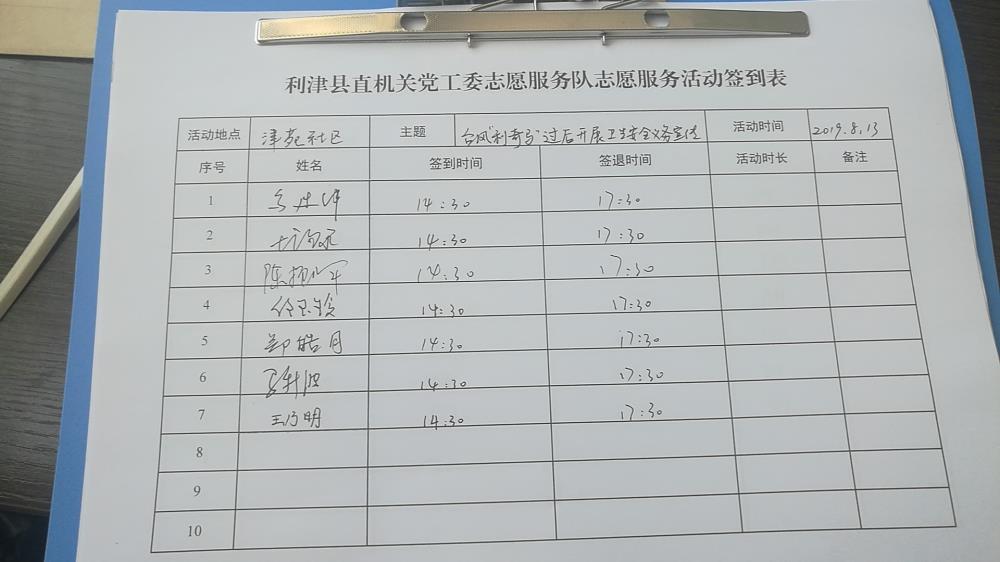 利津县直机关党工委志愿服务队志愿服务活动签到表
活动地点 津苑社区 主题 台风"利奇马"过后开展卫生安全义务宣传 活动时间 2019.8.13
序号 姓名 签到时间 签退时间 活动时长 备注
1 14:30 17:30
2 14:30 17:30
3 14:30 17:30
4 14:30 17:30
5 郑皓月 14:30 17:30
6 14:30 17:30
7 王乃明 14:30 17:30
8
9
10